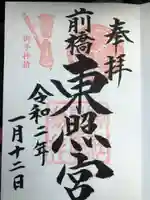 奉拝
前橋
東照宮
令和二年
一月十二日